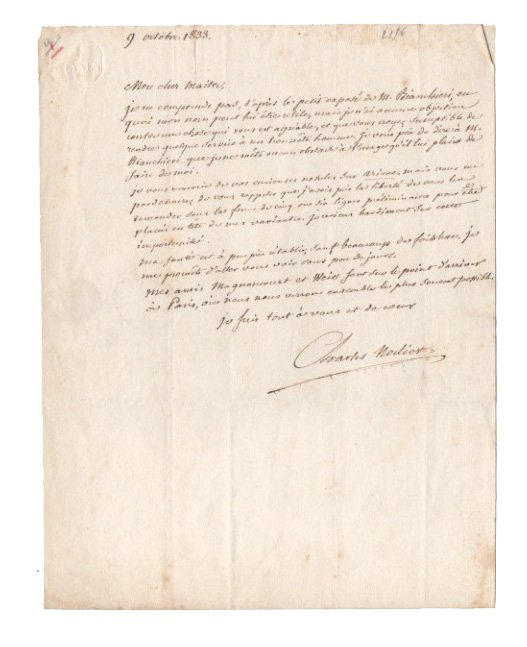 9 octobre 1833.
2196
Mon cher Maître,
je ne comprends pas, d'après le petit exposé de M. Bianchieri, en
quoi mon nom peut lui être utile, mais je n'ai aucune objection
contre une chose qui vous est agréable, et que vous croyez susceptible de
rendre quelque service à un honnête homme. Je vous prie de dire à M.
Bianchieri que je ne mets aucun obstacle à l'usage qu'il lui plaira de
faire de moi.
je vous remercie de vos curieuses notules sur, mais vous me
pardonnerez de vous rappeler que j'avais pris la liberté de vous les
demander sous la forme de cinq ou six lignes préliminaires pour être
placées en tête de mes variantes. Je reviens hardiment sur cette
importunité.
ma santé est à peu près rétablie, sauf beaucoup de foiblesse. je
me promets d'aller vous voir sous peu de jours.
Mes amis Magnoncourt et Weiss sont sur le point d'arriver
à Paris, où nous nous verrons ensemble le plus souvent possible.
Je suis tout à vous et de coeur
Charles Nodier